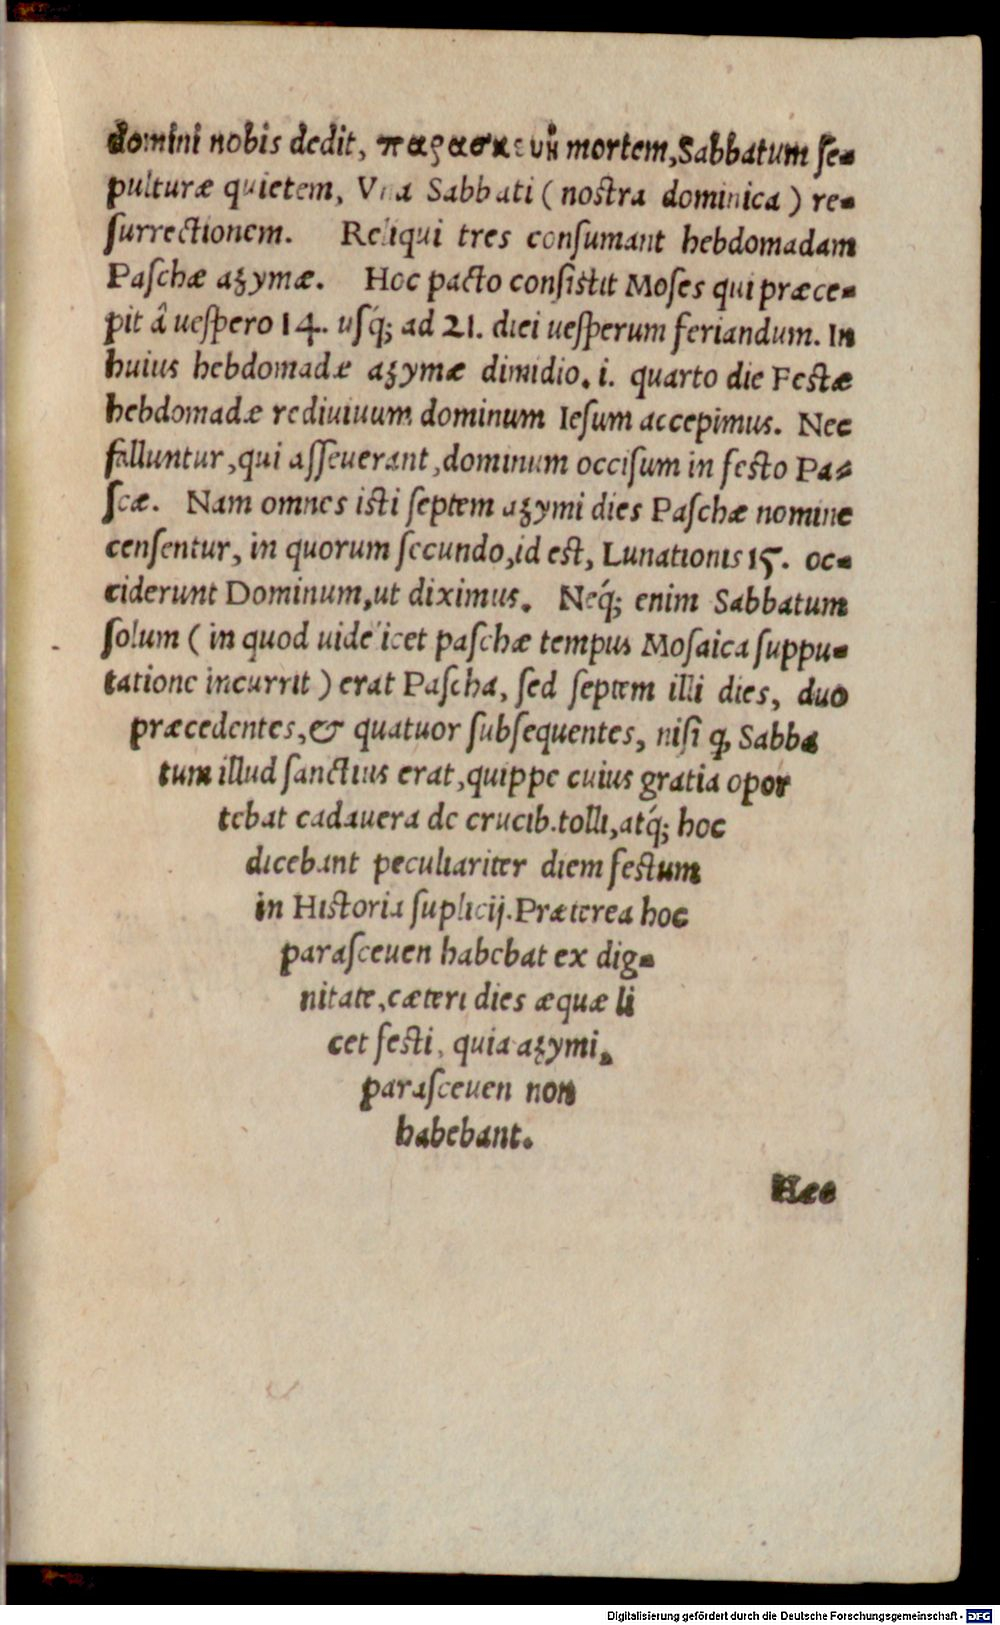 domini nobis dedit, παρασκευὴ mortem, Sabbatum se-
pulturæ quietem, Vna Sabbati (nostra dominica) re-
surrectionem. Reliqui tres consumant hebdomadam
Paschæ azymæ. Hoc pacto consistit Moses qui præce-
pit â uespero 14. usq́; ad 21. diei uesperum feriandum. In
huius hebdomadæ azymæ dimidio. i. quarto die Festæ
hebdomadæ rediuiuum dominum Iesum accepimus. Nec
falluntur, qui asseuerant, dominum occisum in festo Pa-
scæ. Nam omnes isti septem azymi dies Paschæ nomine
censentur, in quorum secundo, id est, Lunationis 15. oc-
ciderunt Dominum, ut diximus. Neq́; enim Sabbatum
solum (in quod uidelicet paschæ tempus Mosaica suppu-
tatione incurrit) erat Pascha, sed septem illi dies, duo
præcedentes, & quatuor subsequentes, nisi ꝙ Sabba
tum illud sanctius erat, quippe cuius gratia opor
tebat cadauera de crucib. tolli, atq́; hoc
dicebant peculiariter diem festum
in Historia suplicij. Præterea hoc
parasceuen habebat ex dig-
nitate, cæteri dies æquæ li
cet festi, quia azymi,
parasceuen non
habebant.
Hæc
Digitalisierung gefördert durch die Deutsche Forschungsgemeinschaft - DFG